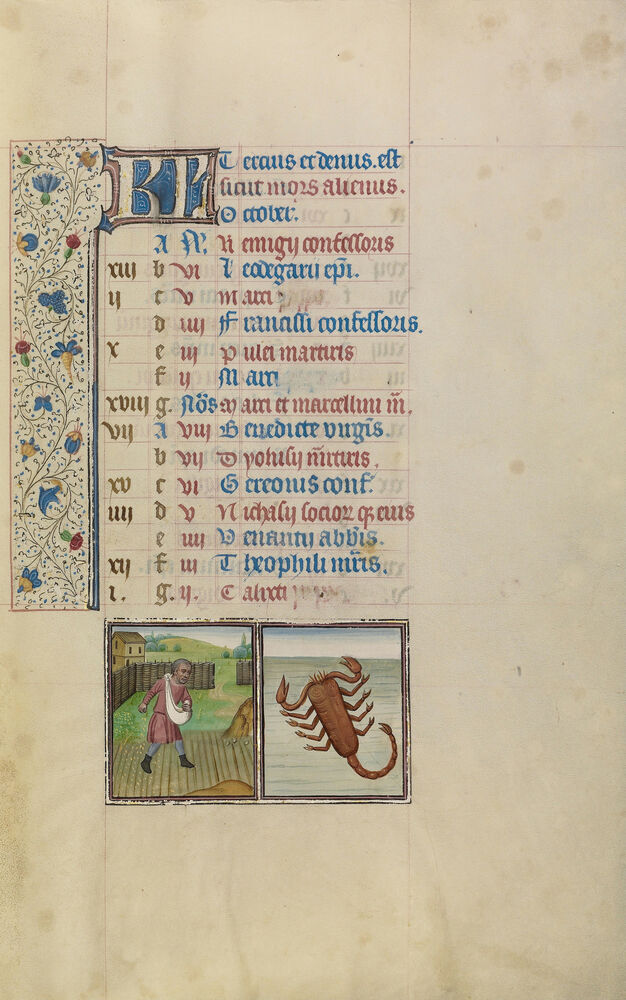 KL Tercius et denus. est
sicut mors alienus.
October.
A N. Remigij confessoris
xiii b vi Leodegarii epi.
ii c v Marci
d iiii Francisci confessoris.
x e iii Pulei martiris
f ii Marci
xviii g. Nos Marci et marcellini m.
vii A viii Benedicte virgis.
b vii Dyonisij mrtiris.
xv c vi Gereonis conf.
iiii d v Nichasij socior qz eius
e iiii Venantii abbis.
xii f iii Theophili mris.
i. g. ii. Calixti